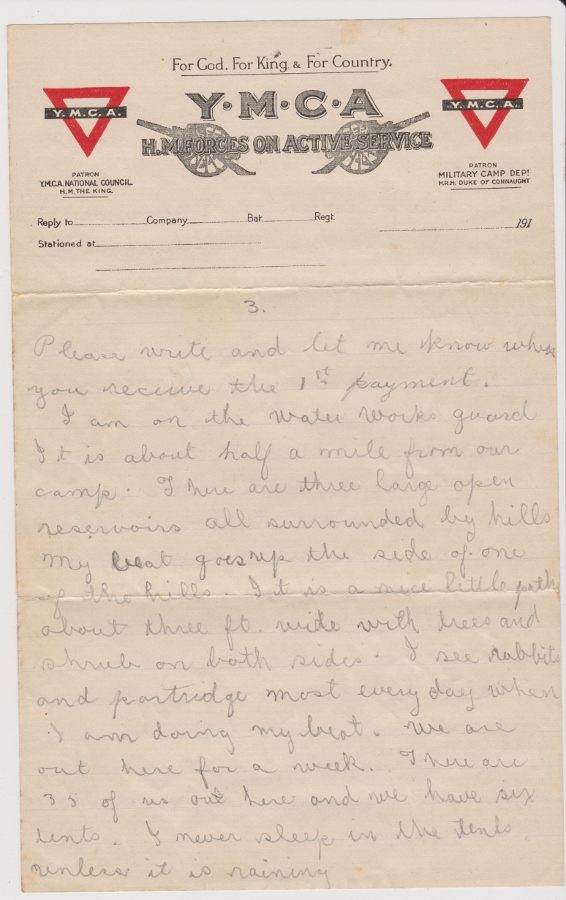 For God. For King & For Country.
Y·M·C·A
H.M. FORCES ON ACTIVE SERVICE
Y.M.C.A.
PATRON
Y.M.C.A. NATIONAL COUNCIL.
H.M. THE KING.
Y.M.C.A.
PATRON
MILITARY CAMP DEPT
H.R.H. DUKE OF CONNAUGHT
Reply to Company Bat. Regt. 191
Stationed at
3.
Please write and let me know when
you receive the 1st payment.
I am on the water works guard
It is about half a mile from our
camp. There are three large open
reservoirs all surrounded by hills
My beat goes up the side of one
of the hills. It is a nice little path
about three ft. wide with trees and
shrub on both sides. I see rabbits
and partridge most every day when
I am doing my beat. We are
out here for a week. There are
35 of us out here and we have six
tents. I never sleep in the tents
unless it is raining